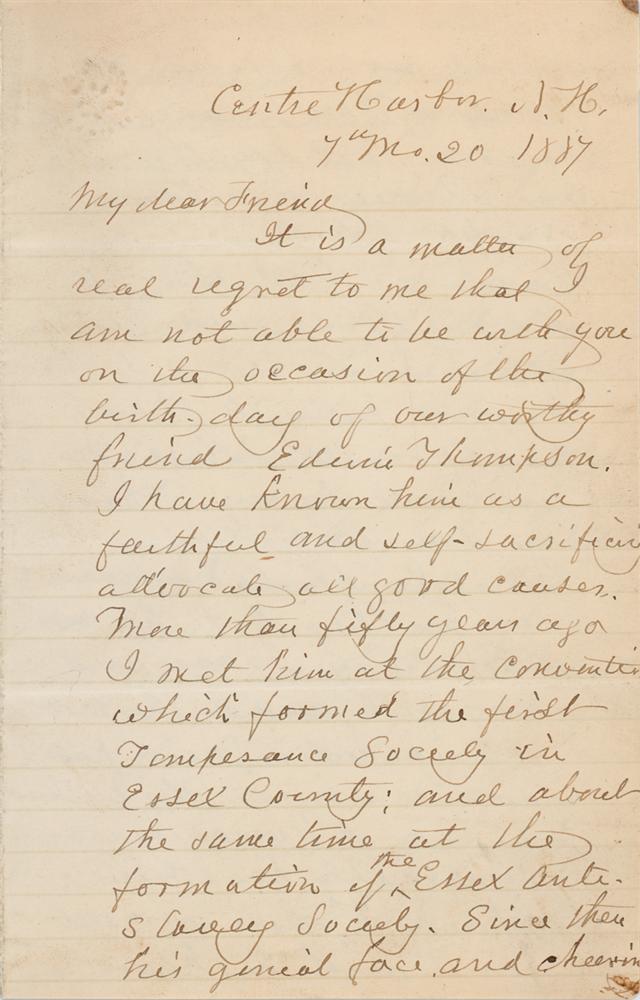 Centre Harbor. N. H.
7th Mo. 20 1887
My dear Friend
It is a matter of
real regret to me that I
am not able to be with you
on the occasion of the
birth-day of our worthy
friend Edwin Thompson.
I have known him as a
faithful and self-sacrificing
advocate all good causes.
More than fifty years ago
I met him at the conventio
which formed the first
Temperance Society in
Essex County; and about
the same time at the
formation of the Essex Anti-
Slavery Society. Since then
his genial face and cheerin